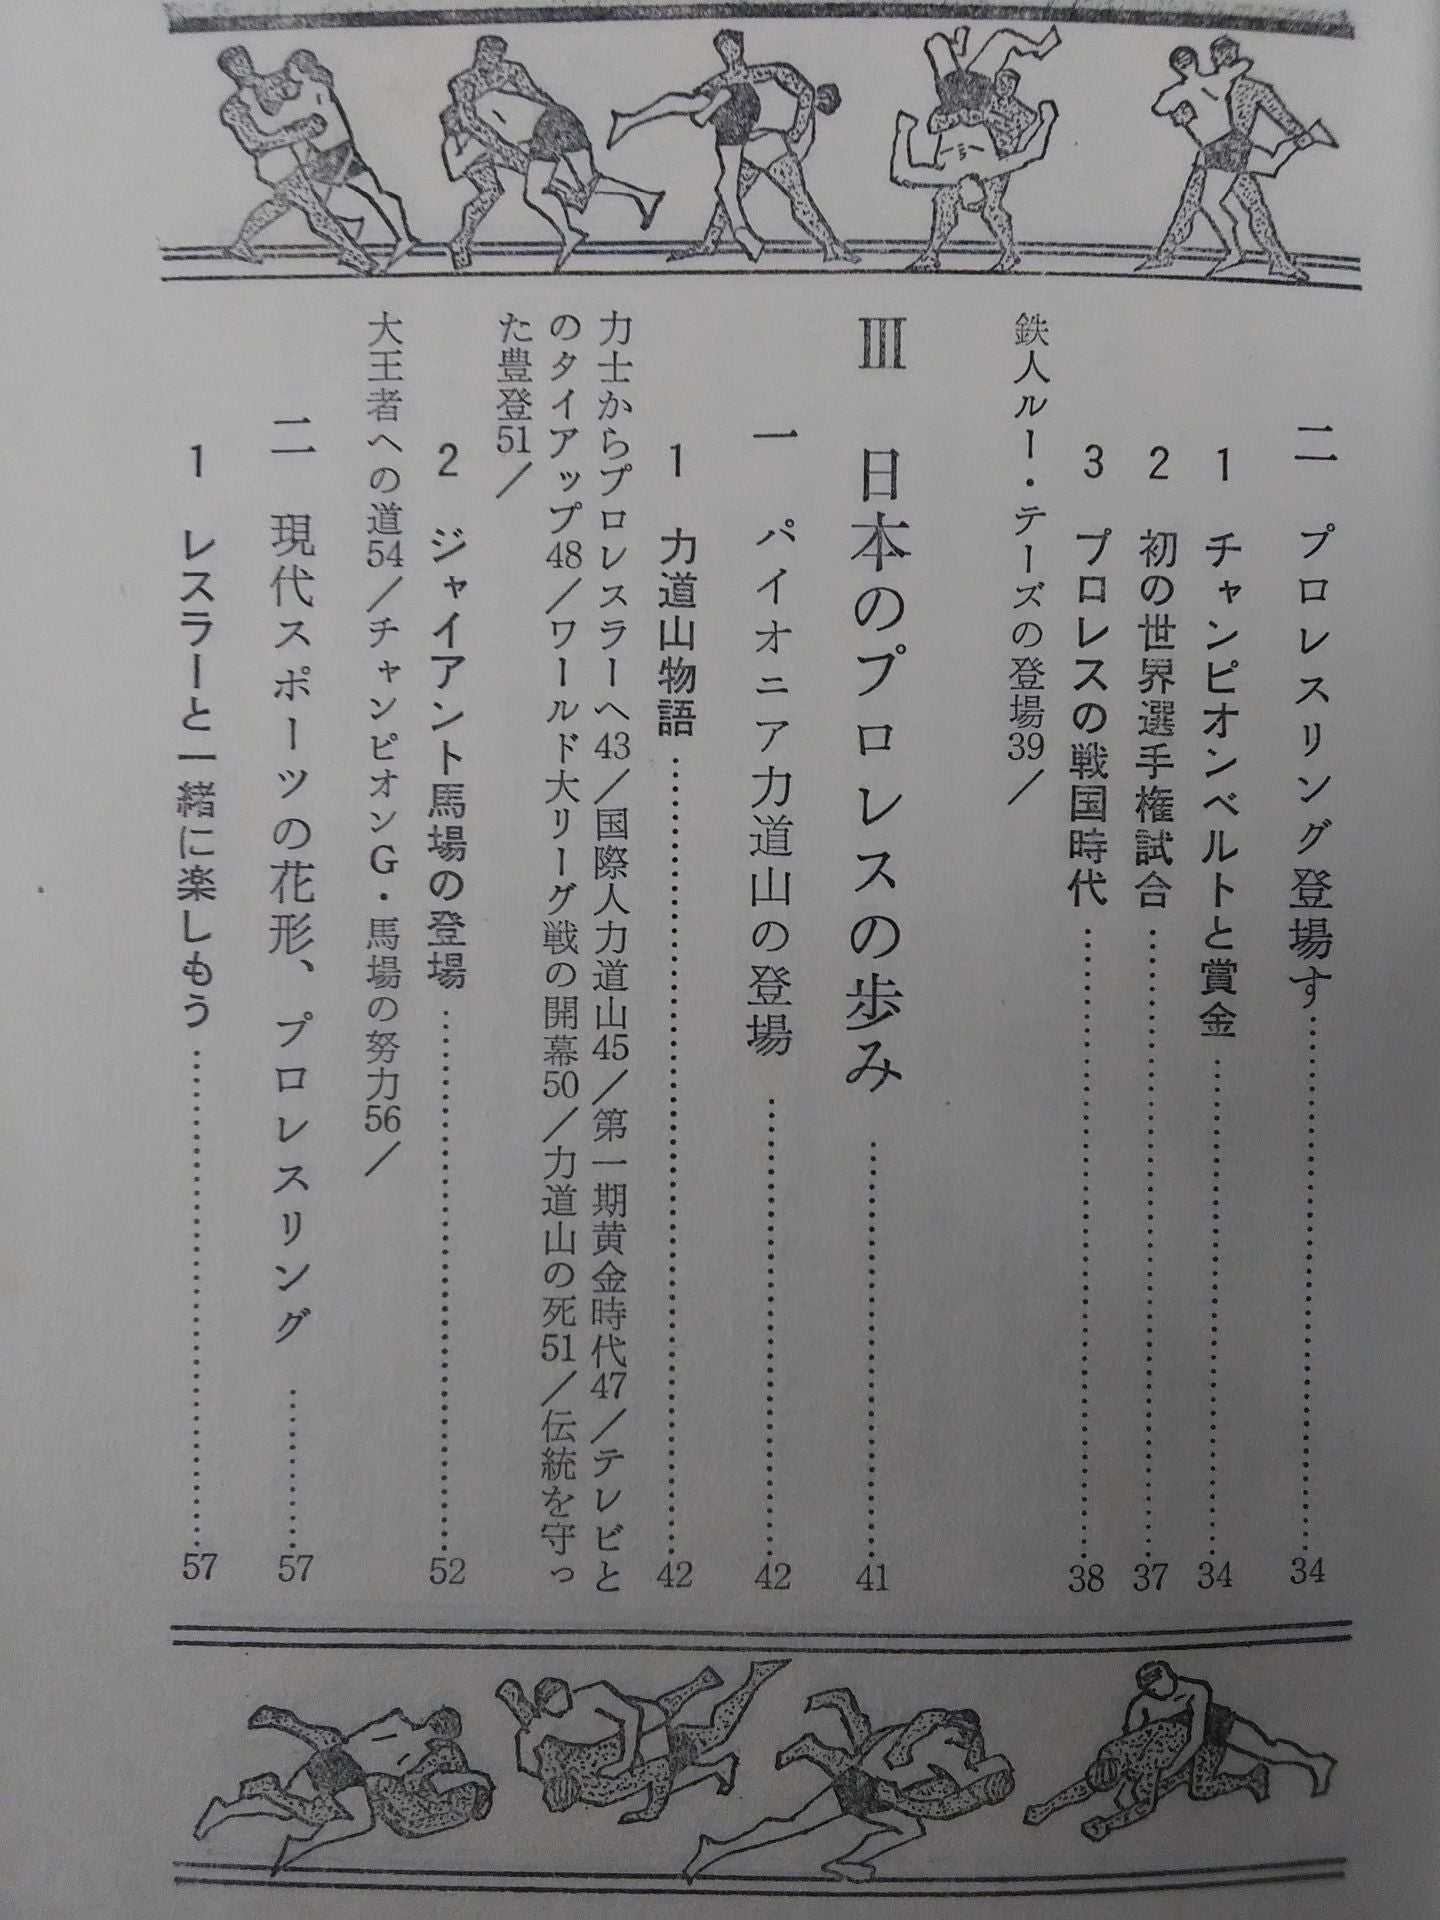 二 プロレスリング登場す……34
1 チャンピオンベルトと賞金……34
2 初の世界選手権試合……37
3 プロレスの戦国時代……38
鉄人ルー・テーズの登場39／
Ⅲ 日本のプロレスの歩み……41
一 パイオニア力道山の登場……42
1 力道山物語……42
力士からプロレスラーへ43／国際人力道山45／第一期黄金時代47／テレビと
のタイアップ48／ワールド大リーグ戦の開幕50／力道山の死51／伝統を守っ
た豊登51／
2 ジャイアント馬場の登場……52
大王者への道54／チャンピオンG・馬場の努力56／
二 現代スポーツの花形、プロレスリング……57
1 レスラーと一緒に楽しもう……57